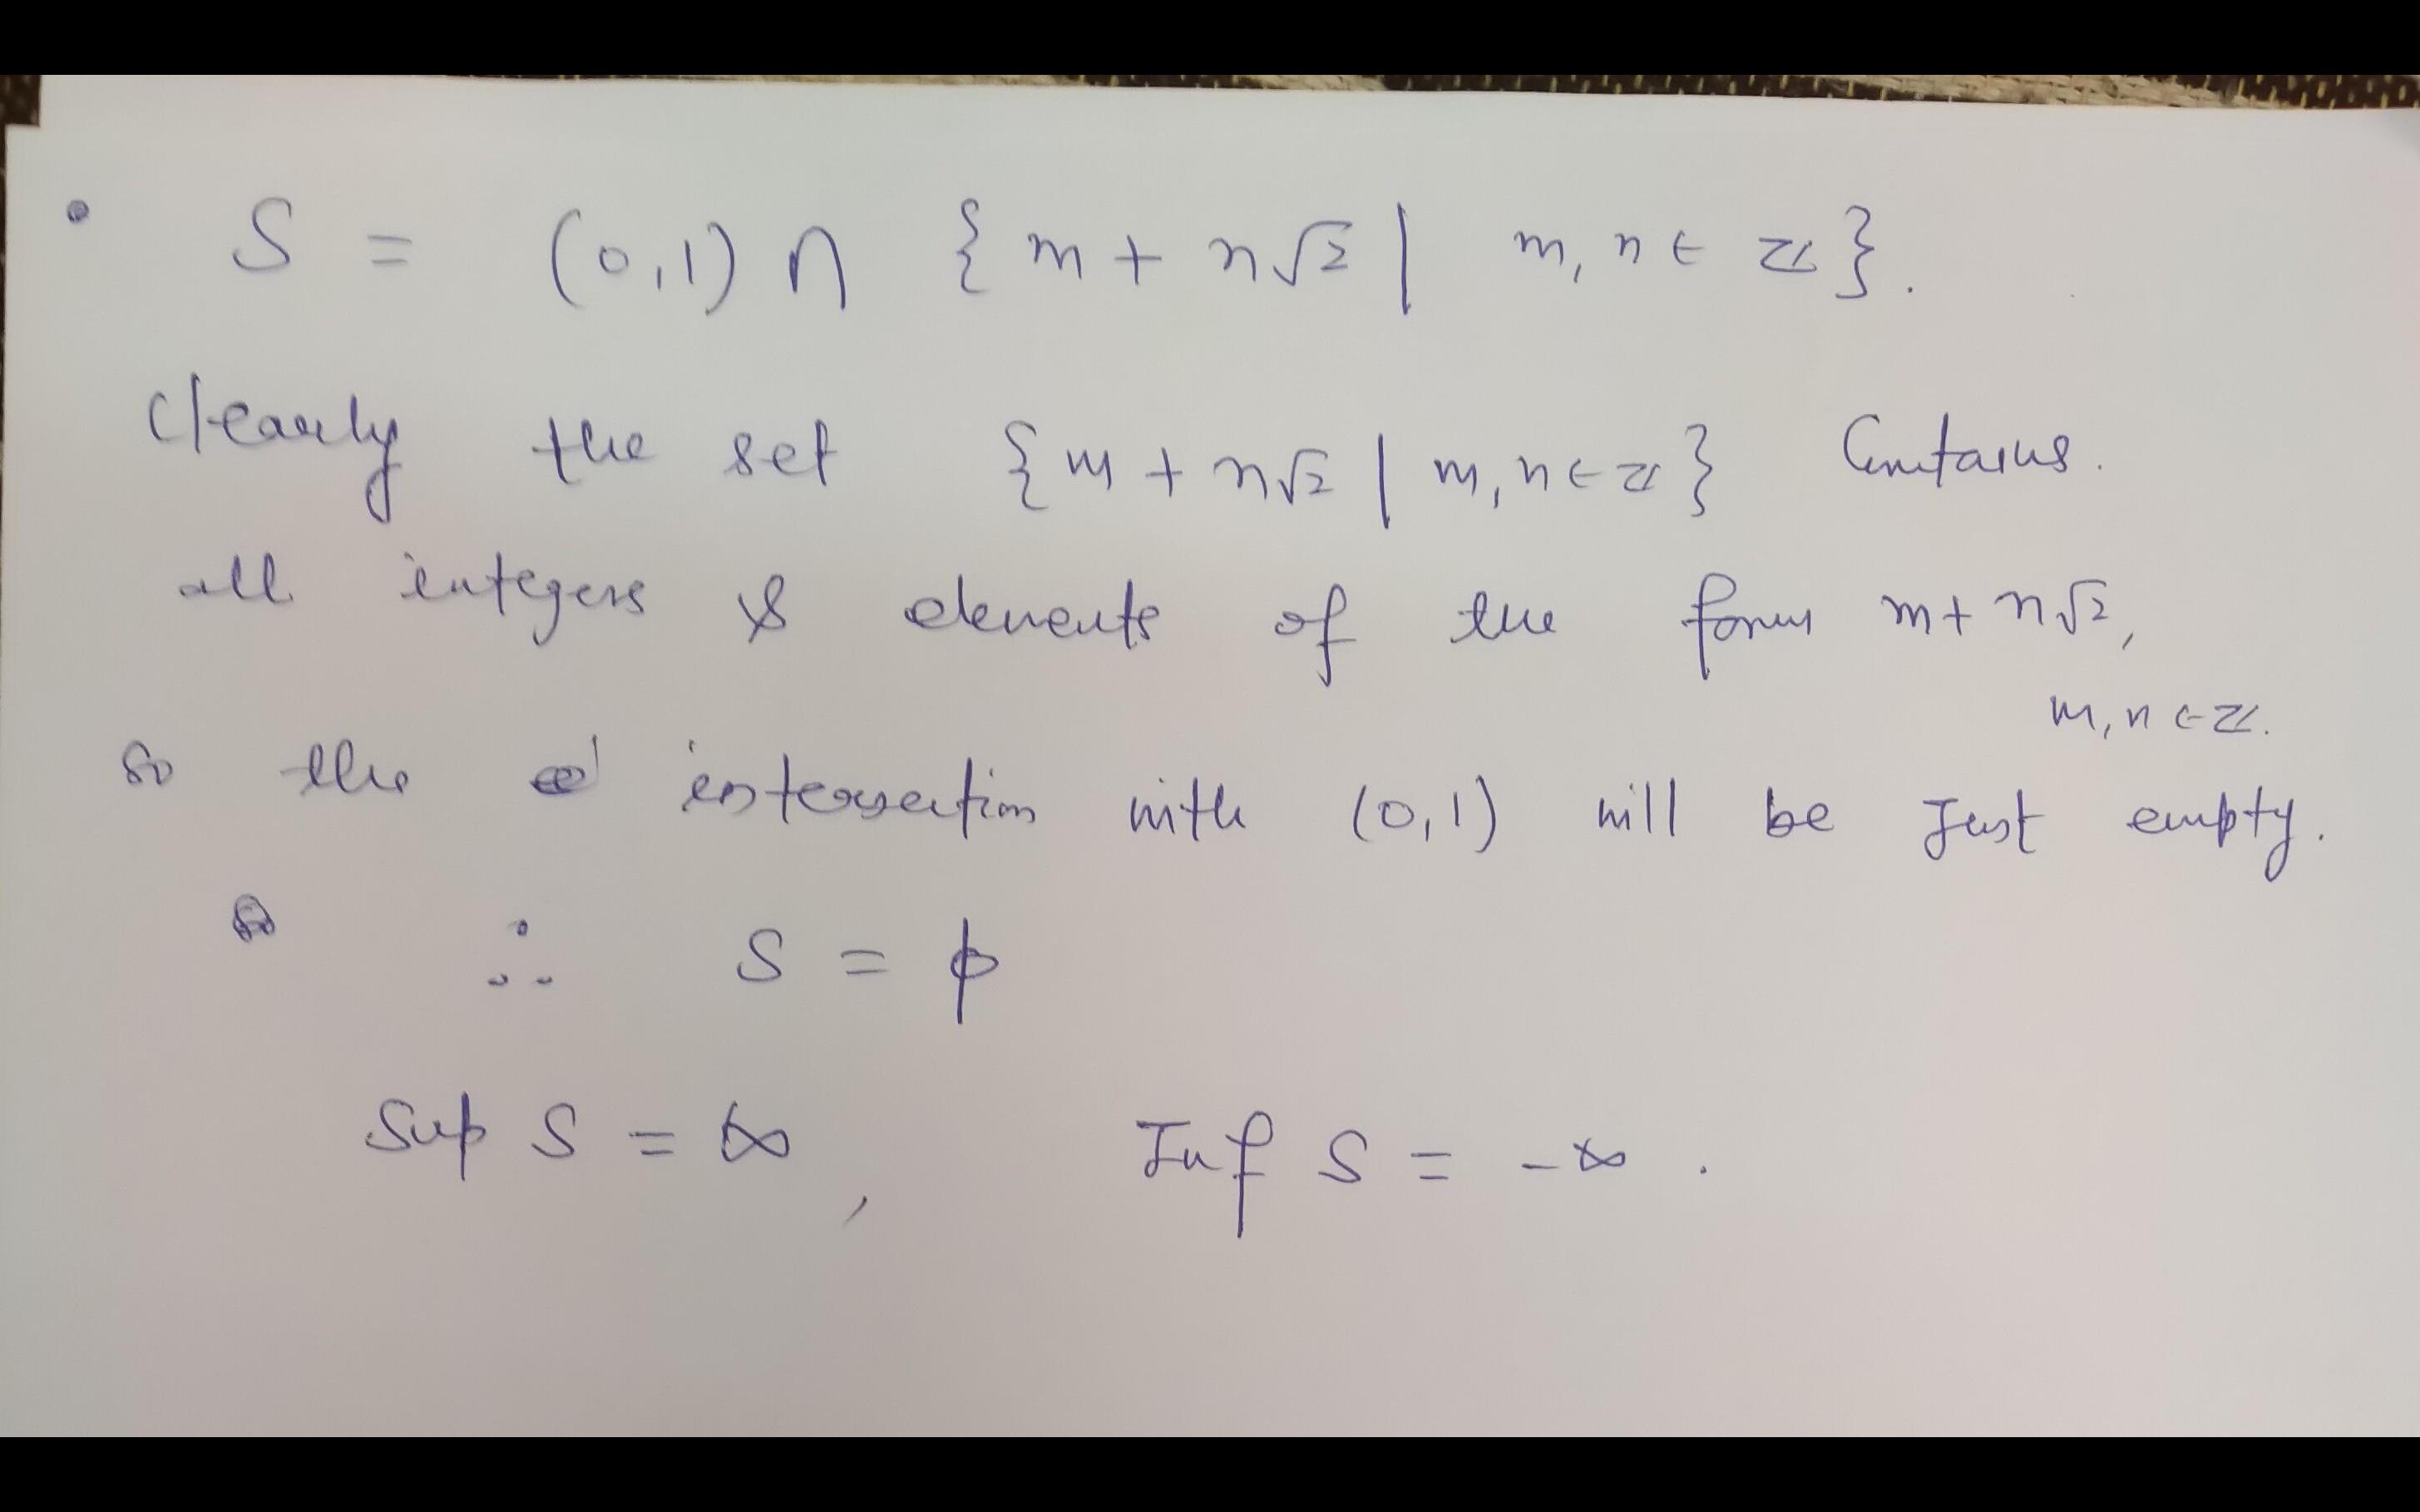 • S = (0,1) ∩ {m + n√2 | m, n ∈ ℤ}.
Clearly the set {m + n√2 | m, n ∈ ℤ} Contains.
all integers & elements of the form m + n√2,
m, n ∈ ℤ.
so the intersection with (0,1) will be Just empty.
∴ S = ϕ
Sup S = ∞, Inf S = -∞.